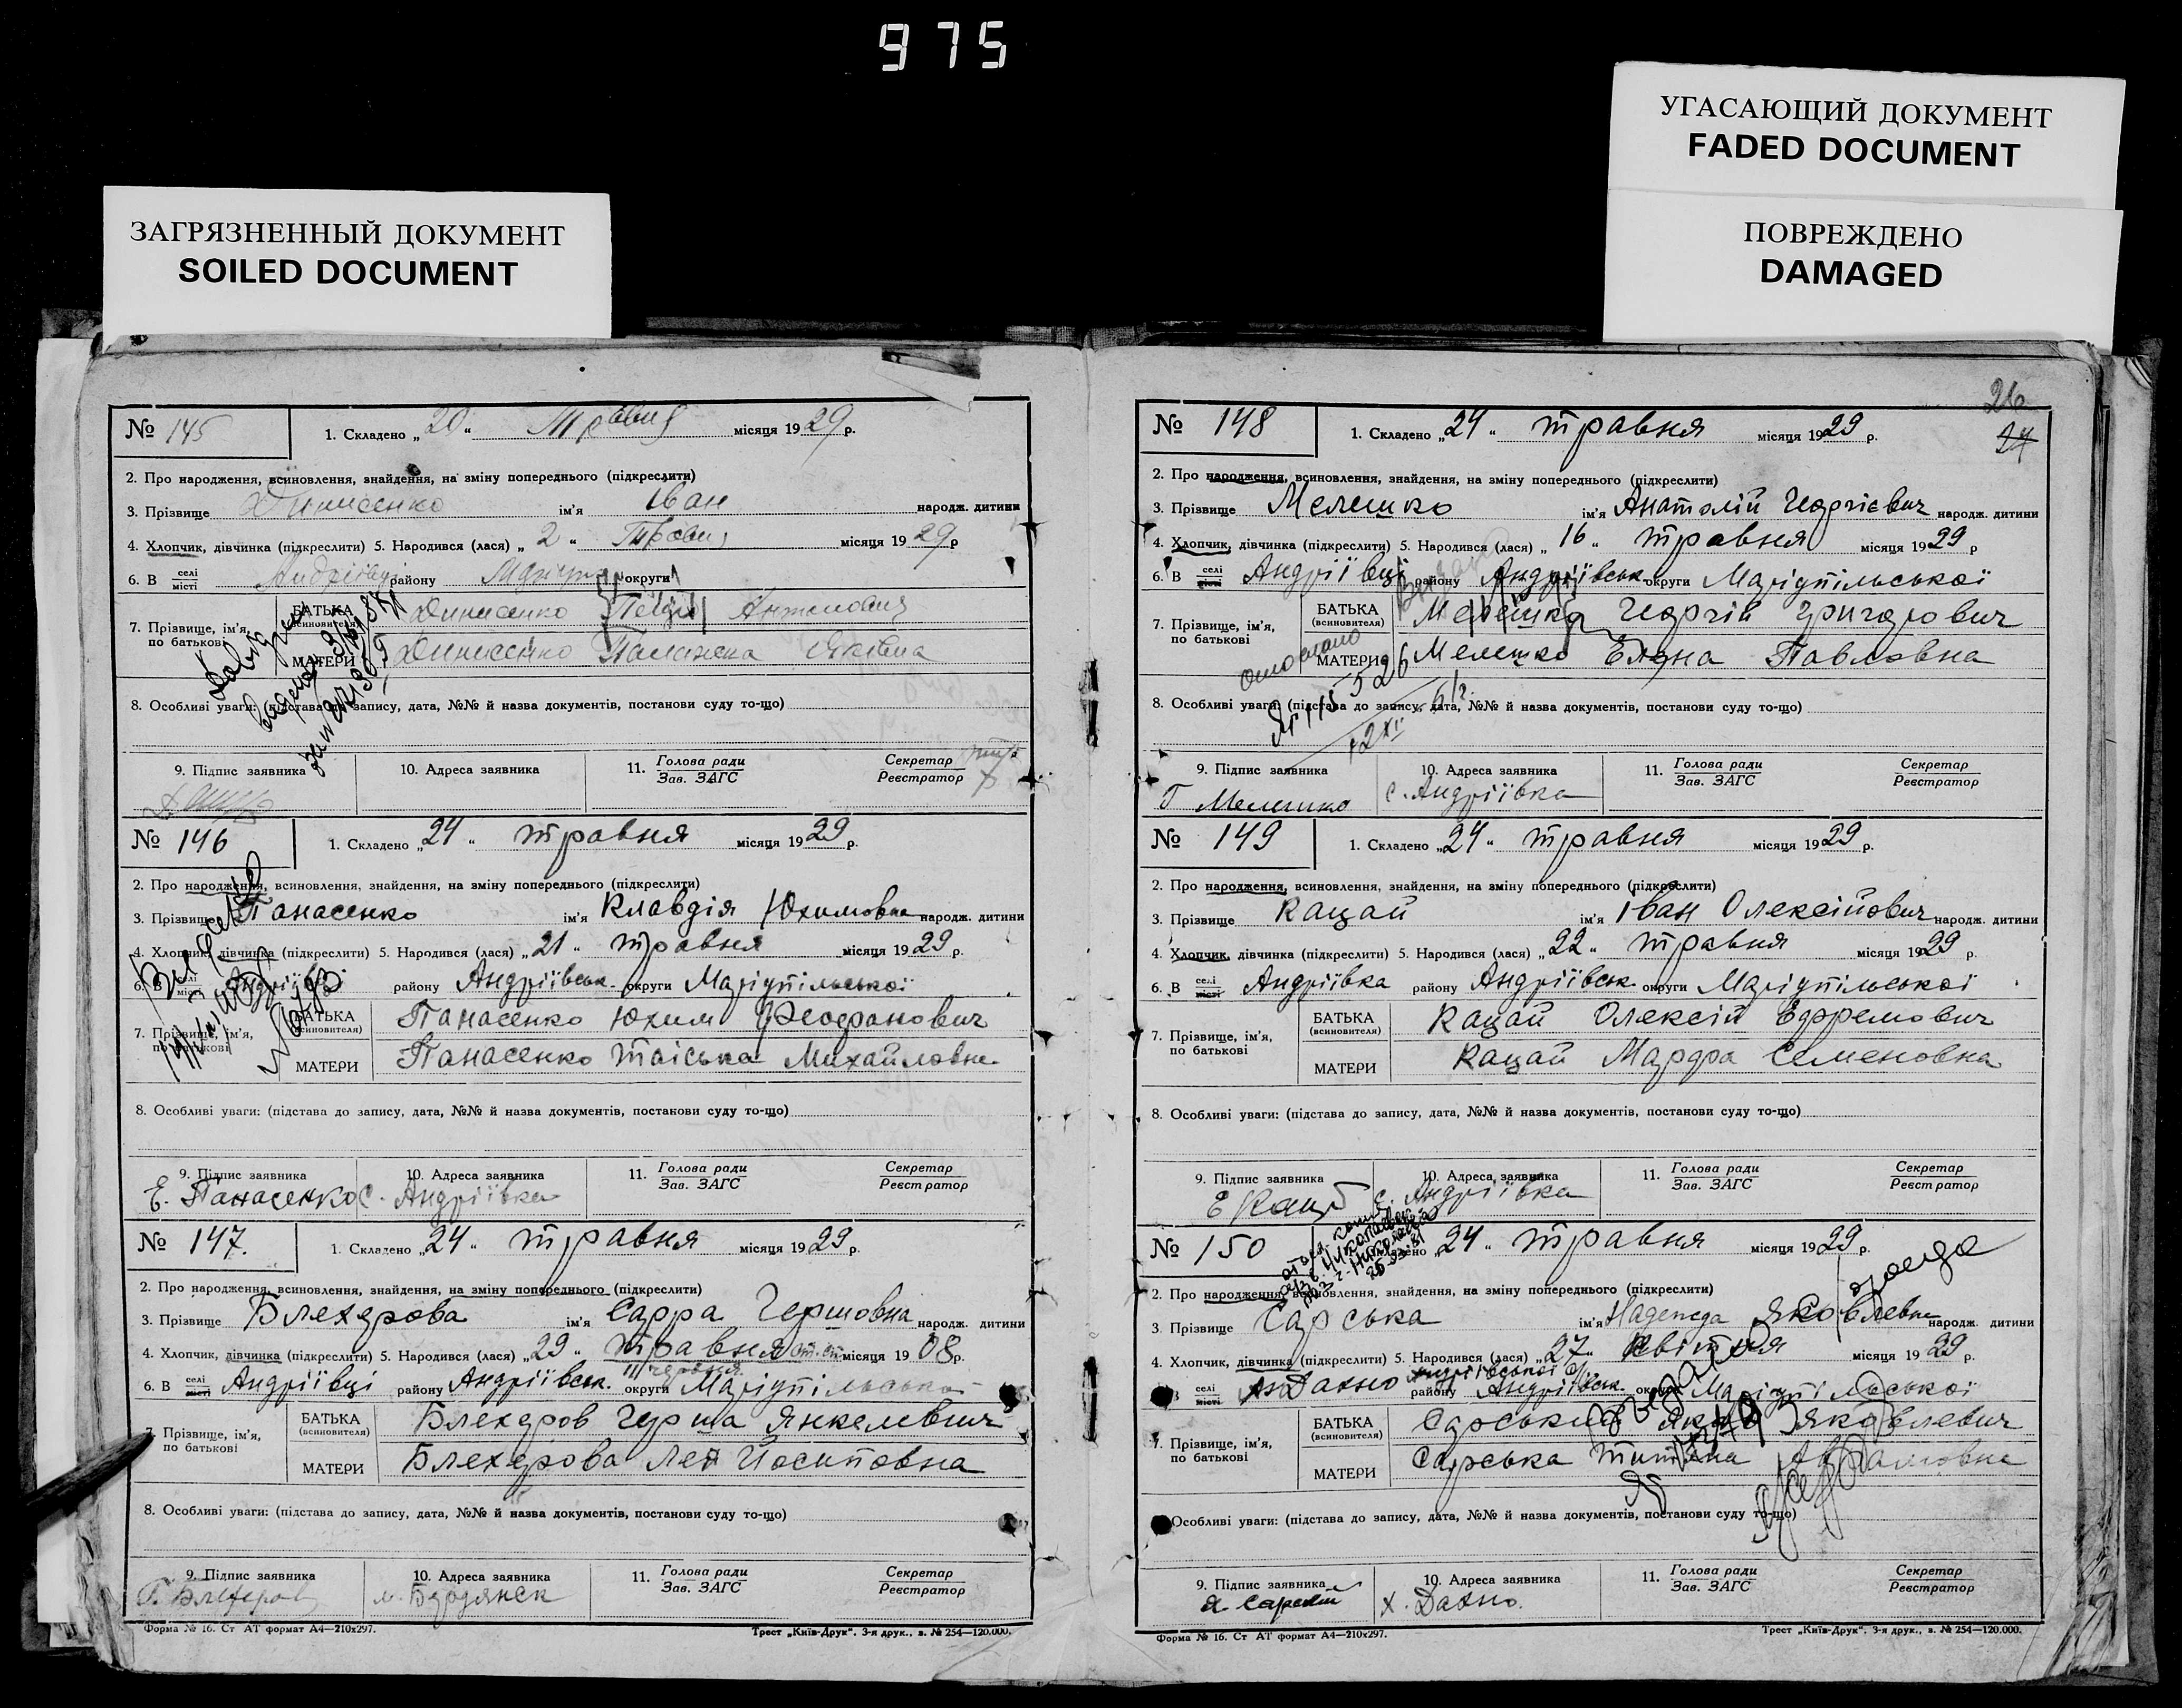 975
УГАСАЮЩИЙ ДОКУМЕНТ
FADED DOCUMENT
ПОВРЕЖДЕНО
DAMAGED
ЗАГРЯЗНЕННЫЙ ДОКУМЕНТ
SOILED DOCUMENT
№ 145 1. Складено „20“ Травня місяця 1929 р.
2. Про народження, всиновлення, знайдення, на зміну попереднього (підкреслити)
3. Прізвище Динисенко ім'я Іван народж. дитини
4. Хлопчик, дівчинка (підкреслити) 5. Народився (лася) „2“ Травня місяця 1929 р
6. В селі місті району округи
7. Прізвище, ім'я, по батькові
БАТЬКА (всиновителя) Динисенко
МАТЕРИ Динисенко
8. Особливі уваги: (підстава до запису, дата, №№ й назва документів, постанови суду то-що)
9. Підпис заявника 10. Адреса заявника 11. Голова ради Зав. ЗАГС Секретар Реєстратор
№ 146 1. Складено „24“ травня місяця 1929 р.
2. Про народження, всиновлення, знайдення, на зміну попереднього (підкреслити)
3. Прізвище Панасенко ім'я Клавдія Юхимовна народж. дитини
4. Хлопчик, дівчинка (підкреслити) 5. Народився (лася) „21“ травня місяця 1929 р.
6. В селі місті Андріївці району Андріївськ. округи Маріупільської
7. Прізвище, ім'я, по батькові
БАТЬКА (всиновителя) Панасенко Юхим Феофанович
МАТЕРИ Панасенко Таіська Михайловна
8. Особливі уваги: (підстава до запису, дата, №№ й назва документів, постанови суду то-що)
9. Підпис заявника 10. Адреса заявника 11. Голова ради Зав. ЗАГС Секретар Реєстратор
Е. Панасенко с. Андріївка
№ 147. 1. Складено „24“ травня місяця 1929 р.
2. Про народження, всиновлення, знайдення, на зміну попереднього (підкреслити)
3. Прізвище Блехерова ім'я Сарра Гершовна народж. дитини
4. Хлопчик, дівчинка (підкреслити) 5. Народився (лася) „29“ травня ст. ст. місяця 1908 р.
11 червня
6. В селі місті Андріївці району Андріївськ. округи Маріупільської
7. Прізвище, ім'я, по батькові
БАТЬКА (всиновителя) Блехеров Герша Янкелевич
МАТЕРИ Блехерова Лея Йосиповна
8. Особливі уваги: (підстава до запису, дата, №№ й назва документів, постанови суду то-що)
9. Підпис заявника 10. Адреса заявника 11. Голова ради Зав. ЗАГС Секретар Реєстратор
Г. Блехеров м. Бердянск
Форма № 16. Ст АТ формат А4—210х297. Трест „Київ-Друк“. 3-я друк., з. № 254—120.000.
26
27
№ 148 1. Складено „24“ травня місяця 1929 р.
2. Про народження, всиновлення, знайдення, на зміну попереднього (підкреслити)
3. Прізвище Мелешко ім'я Анатолій Георгієвич народж. дитини
4. Хлопчик, дівчинка (підкреслити) 5. Народився (лася) „16“ травня місяця 1929 р
6. В селі місті Андріївці району Андріївськ. округи Маріупільської
7. Прізвище, ім'я, по батькові
БАТЬКА (всиновителя) Мелешко Георгій Григорович
МАТЕРИ Мелешко Елена Павловна
8. Особливі уваги: (підстава до запису, дата, №№ й назва документів, постанови суду то-що)
9. Підпис заявника 10. Адреса заявника 11. Голова ради Зав. ЗАГС Секретар Реєстратор
Г Мелешко с. Андріївка
№ 149 1. Складено „24“ травня місяця 1929 р.
2. Про народження, всиновлення, знайдення, на зміну попереднього (підкреслити)
3. Прізвище Кацай ім'я Іван Олексійович народж. дитини
4. Хлопчик, дівчинка (підкреслити) 5. Народився (лася) „22“ травня місяця 1929 р.
6. В селі місті Андріївка району Андріївськ. округи Маріупільської
7. Прізвище, ім'я, по батькові
БАТЬКА (всиновителя) Кацай Олексій Ефремович
МАТЕРИ Кацай Марфа Семеновна
8. Особливі уваги: (підстава до запису, дата, №№ й назва документів, постанови суду то-що)
9. Підпис заявника 10. Адреса заявника 11. Голова ради Зав. ЗАГС Секретар Реєстратор
с. Андріївка
№ 150 1. Складено „24“ травня місяця 1929 р.
2. Про народження, всиновлення, знайдення, на зміну попереднього (підкреслити)
3. Прізвище Сарська ім'я Надежда Яковлевна народж. дитини
4. Хлопчик, дівчинка (підкреслити) 5. Народився (лася) „27“ квітня місяця 1929 р.
6. В селі місті х. Дахно району Андріївськ. округи Маріупільської
7. Прізвище, ім'я, по батькові
БАТЬКА (всиновителя) Сарський Яков Яковлевич
МАТЕРИ Сарська Титяна Абрамовна
8. Особливі уваги: (підстава до запису, дата, №№ й назва документів, постанови суду то-що)
9. Підпис заявника 10. Адреса заявника 11. Голова ради Зав. ЗАГС Секретар Реєстратор
Я. Сарский х. Дахно.
Форма № 16. Ст АТ формат А4—210х297. Трест „Київ-Друк“. 3-я друк., з. № 254—120.000.